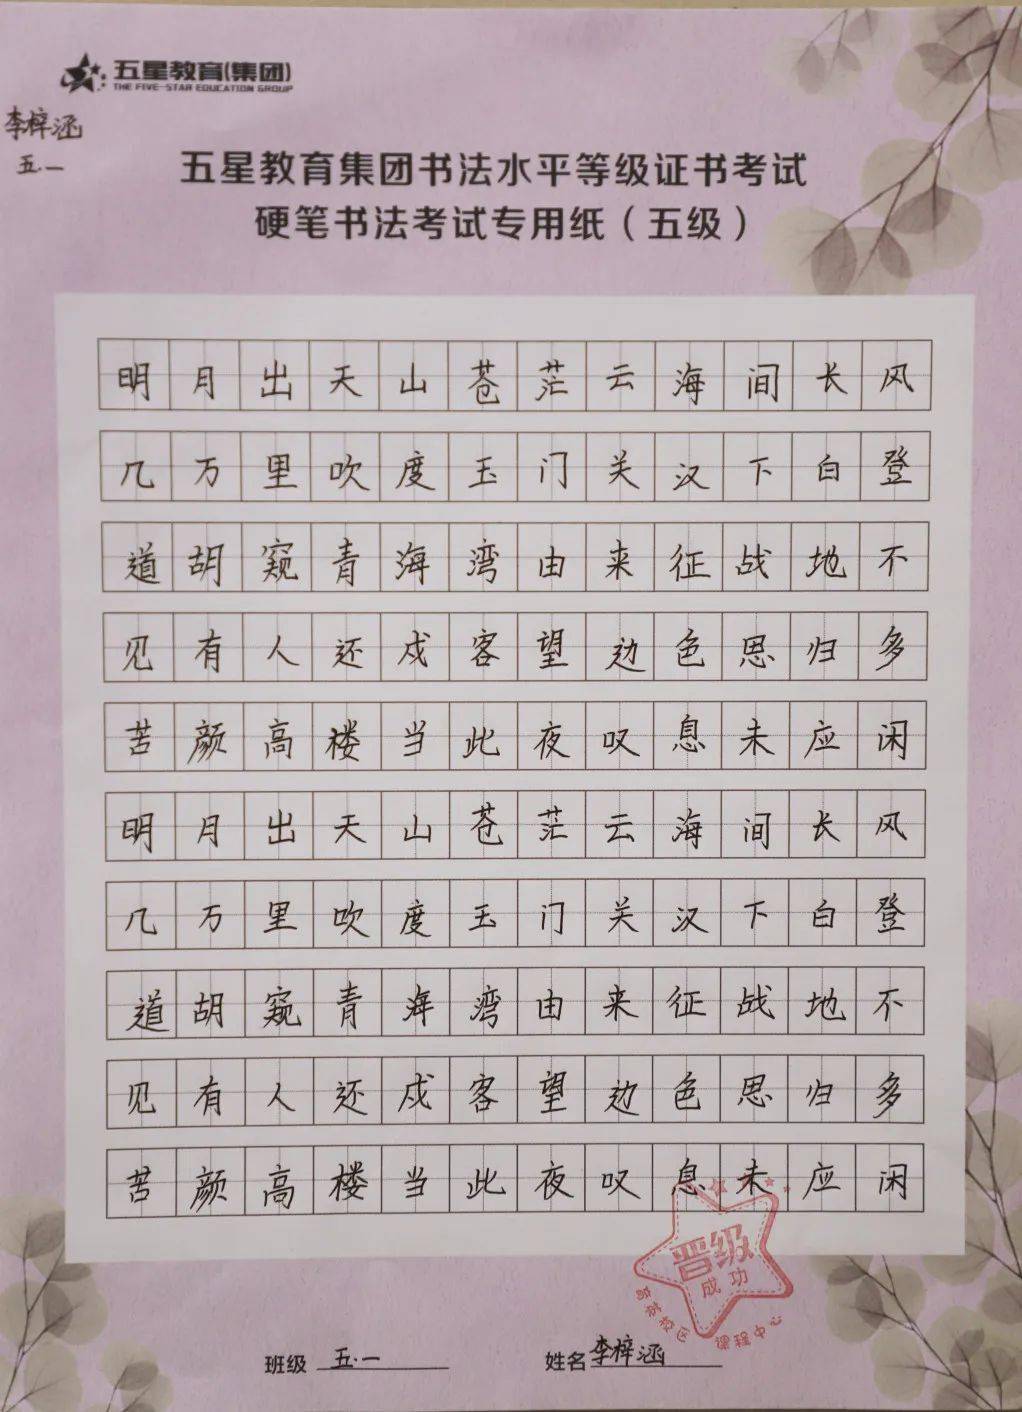 五星教育(集团)
THE FIVE-STAR EDUCATION GROUP
李梓涵
五.一
五星教育集团书法水平等级证书考试
硬笔书法考试专用纸（五级）
明月出天山苍茫云海间长风
几万里吹度玉门关汉下白登
道胡窥青海湾由来征战地不
见有人还戍客望边色思归多
苦颜高楼当此夜叹息未应闲
明月出天山苍茫云海间长风
几万里吹度玉门关汉下白登
道胡窥青海湾由来征战地不
见有人还戍客望边色思归多
苦颜高楼当此夜叹息未应闲
晋级
成功
校区
课程中心
班级 五.一
姓名 李梓涵